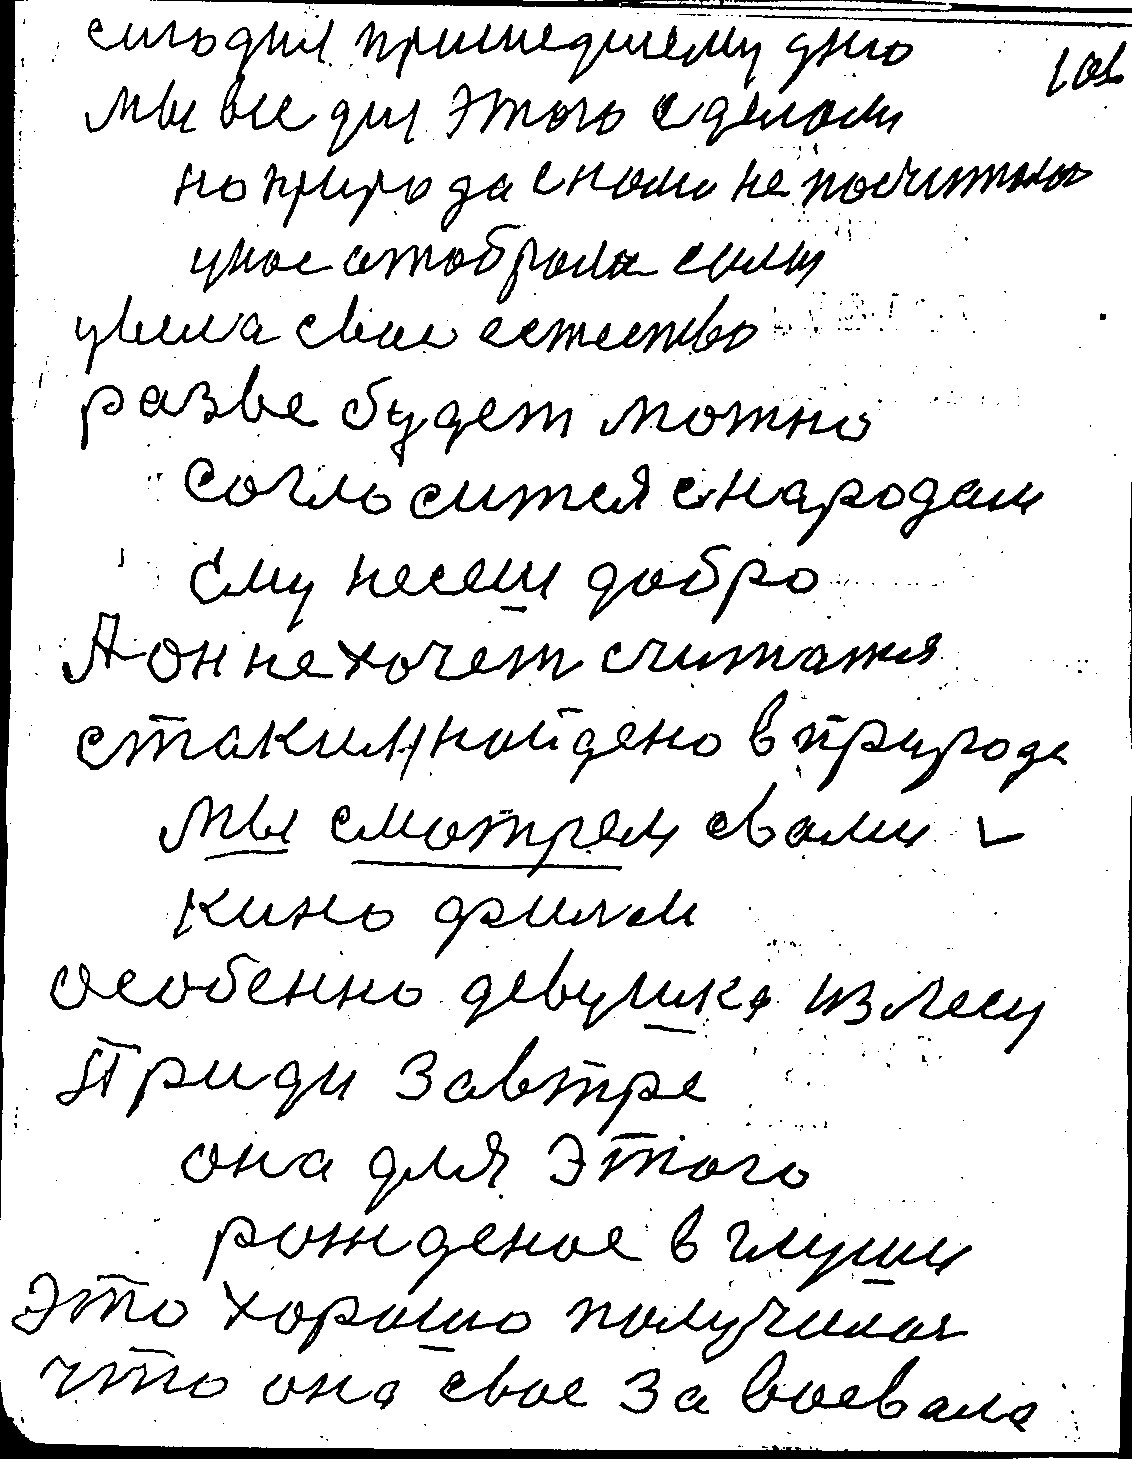 сигодня пришедшему дню
101
мы все для этого сделали
но природа снами не посчиталас
унас отобрала силы
увила свае естество
разве будет можно
согласится снародам
ему несеш добро
А он не хочет считатя
стаким найдено в природе
мы смотрем свами
кино филм
особенно девушка из лесу
Приди завтре
она для этого
рожденае в глуши
это хорошо получилас
что она свае завоевала